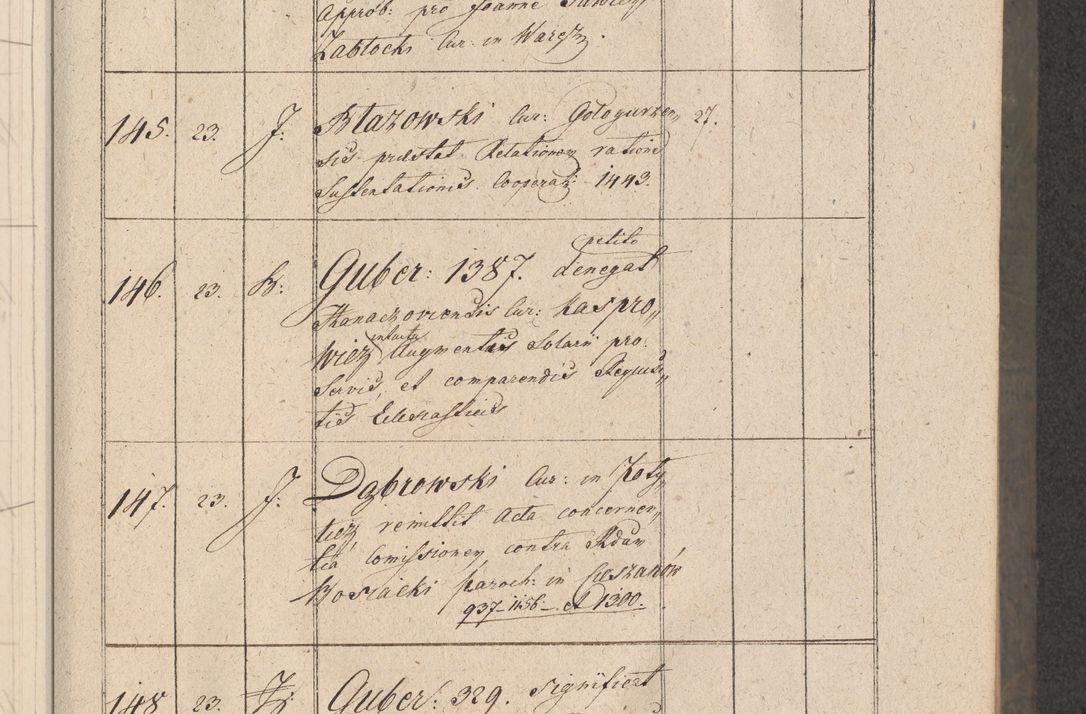 Approb: pro Joanne
Zabłocki Cur: in Waręż.
145. 23. J: Błazowski Cur: Gologurzen„ 27.
sis praestat Relationem ratione
Sustentationis Cooperat: 1443.
petito
146. 23. B: Guber: 1387. denegat
Thanaczoviensis Cur: Kaspro„
intuitu
wicz Augmentis Solarii pro
Servis, et comparendis Requisi„
tis Eclesiasticis
147. 23. J: Dąbrowski Cur: in Poty„
licz, remittit Acta concernen„
tia Comissionem contra Adam
Kosiacki paroch: in Cieszanów
937-1156- et 1300.
148 23. Guber: 329. significat